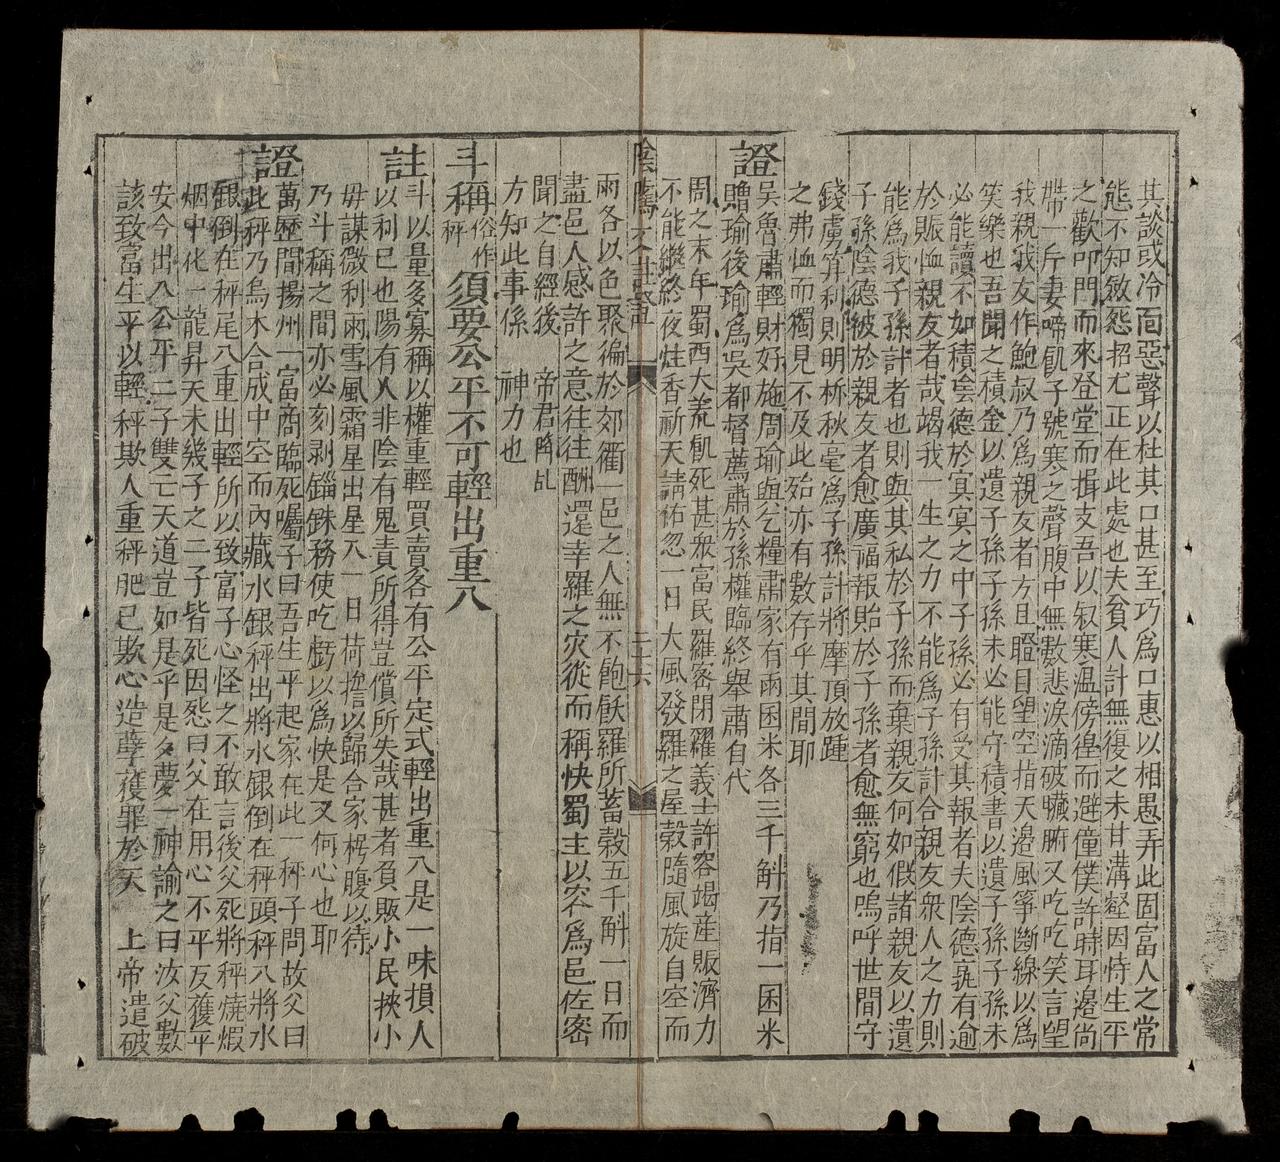 其談或冷面惡聲以杜其口甚至巧爲口惠以相愚弄此固富人之常
能不知斂怨招尤正在此處也夫貧人計無復之未甘溝壑因恃生平
之歡叩門而來登堂而揖支吾以叙寒温傍徨而避僮僕許時耳邊尚
帶一斤妻啼飢子號寒之聲腹中無數悲淚滴破臟腑又吃吃笑言望
我親我友作鮑叔乃爲親友者方且瞪目望空指天邊風箏斷線以爲
笑樂也吾聞之積金以遺子孫子孫未必能守積書以遺子孫子孫未
必能讀不如積陰德於冥冥之中子孫必有受其報者夫陰德孰有逾
於賑恤親友者哉竭我一生之力不能爲子孫計合親友衆人之力則
能爲我子孫計者也則與其私於子孫而棄親友何如假諸親友以遺
子孫陰德被於親友者愈廣福報貽於子孫者愈無窮也嗚呼世間守
錢虜筭利則明析秋毫爲子孫計將摩頂放踵
之弗恤而獨見不及此殆亦有數存乎其間耶
證
吳魯肅輕財好施周瑜與乞糧肅家有兩囷米各三千斛乃指一囷米
贈瑜後瑜爲吳都督薦肅於孫權臨終舉肅自代
周之末年蜀西大荒飢死甚衆富民羅密閉糴義士許容竭産賑濟力
不能繼終夜炷香祈天請祐忽一日大風發羅之屋穀隨風旋自空而
陰隲文註證 三十六
雨各以色聚徧於郊衢一邑之人無不飽飫羅所蓄穀五千斛一日而
盡邑人感許之意往往酬還幸羅之灾從而稱快蜀主以容爲邑佐密
聞之自經後 帝君降乩
方知此事係 神力也
斗稱俗作秤須要公平不可輕出重入
註
斗以量多寡稱以權重輕買賣各有公平定式輕出重入是一味損人
以利己也陽有人非陰有鬼責所得豈償所失哉甚者負販小民挾小
毋謀微利雨雪風霜星出星入一日荷擔以歸合家枵腹以待
乃斗稱之間亦必刻剥錙銖務使吃虧以爲快是又何心也耶
證
萬歷間揚州一富商臨死囑子曰吾生平起家在此一秤子問故父曰
此秤乃烏木合成中空而內藏水銀秤出將水銀倒在秤頭秤入將水
銀倒在秤尾入重出輕所以致富子心怪之不敢言後父死將秤燒煆
烟中化一龍昇天未幾子之二子皆死因怨曰父在用心不平反獲平
安今出入公平二子雙亡天道豈如是乎是夕夢一神諭之曰汝父數
該致富生平以輕秤欺人重秤肥己欺心造孽獲罪於天 上帝遣破